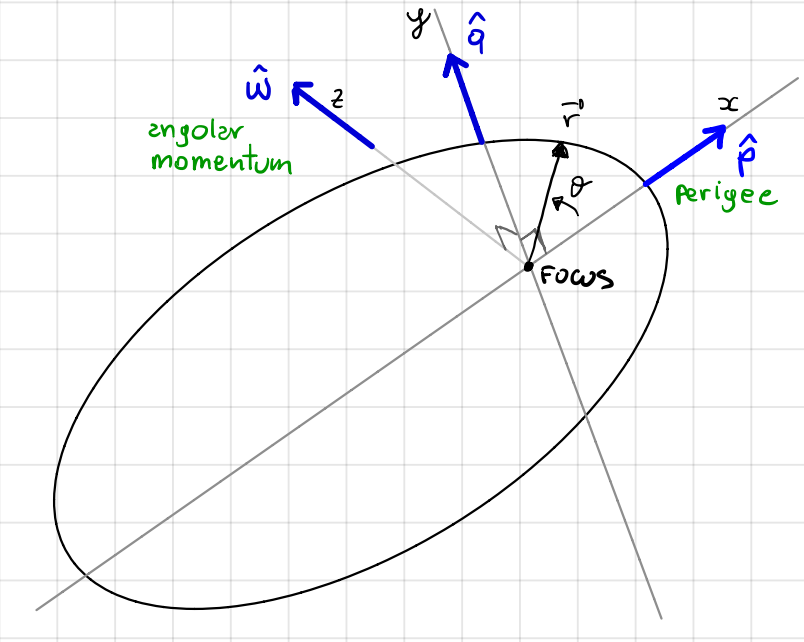 y
q̂
ŵ
z
angular
momentum
r⃗
x
p̂
θ
perigee
FOCUS